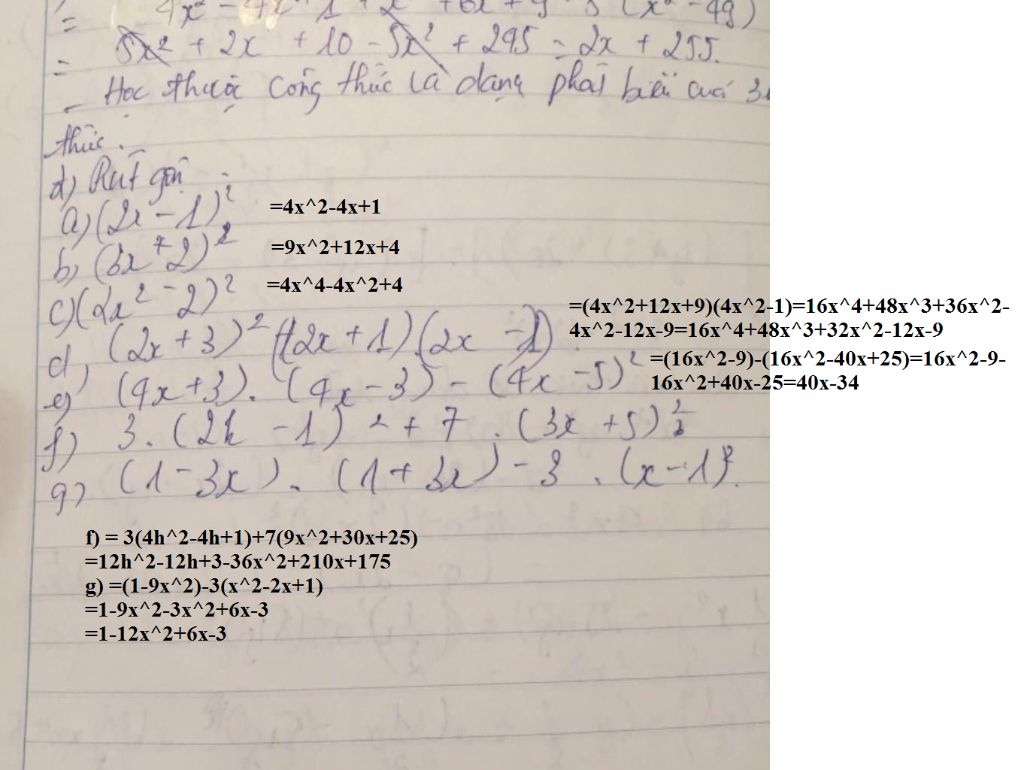 = 4x² - 4x + 1 + x² + 6x + 9 - 5 (x² - 49)
= 5x² + 2x + 10 - 5x² + 295 = 2x + 255.
- Học thuộc công thức là dạng phát biểu 3
thức.
d) Rút gọn
a) (2x - 1)² =4x^2-4x+1
b) (3x + 2)² =9x^2+12x+4
c) (2x² - 2)² =4x^4-4x^2+4
d, (2x + 3)² (2x + 1).(2x - 1) =(4x^2+12x+9)(4x^2-1)=16x^4+48x^3+36x^2-
4x^2-12x-9=16x^4+48x^3+32x^2-12x-9
e) (4x + 3). (4x - 3) - (4x - 5)² =(16x^2-9)-(16x^2-40x+25)=16x^2-9-
16x^2+40x-25=40x-34
f) 3. (2h - 1)² + 7. (3x + 5)²
g) (1 - 3x). (1 + 3x) - 3. (x - 1)².
f) = 3(4h^2-4h+1)+7(9x^2+30x+25)
=12h^2-12h+3-36x^2+210x+175
g) =(1-9x^2)-3(x^2-2x+1)
=1-9x^2-3x^2+6x-3
=1-12x^2+6x-3